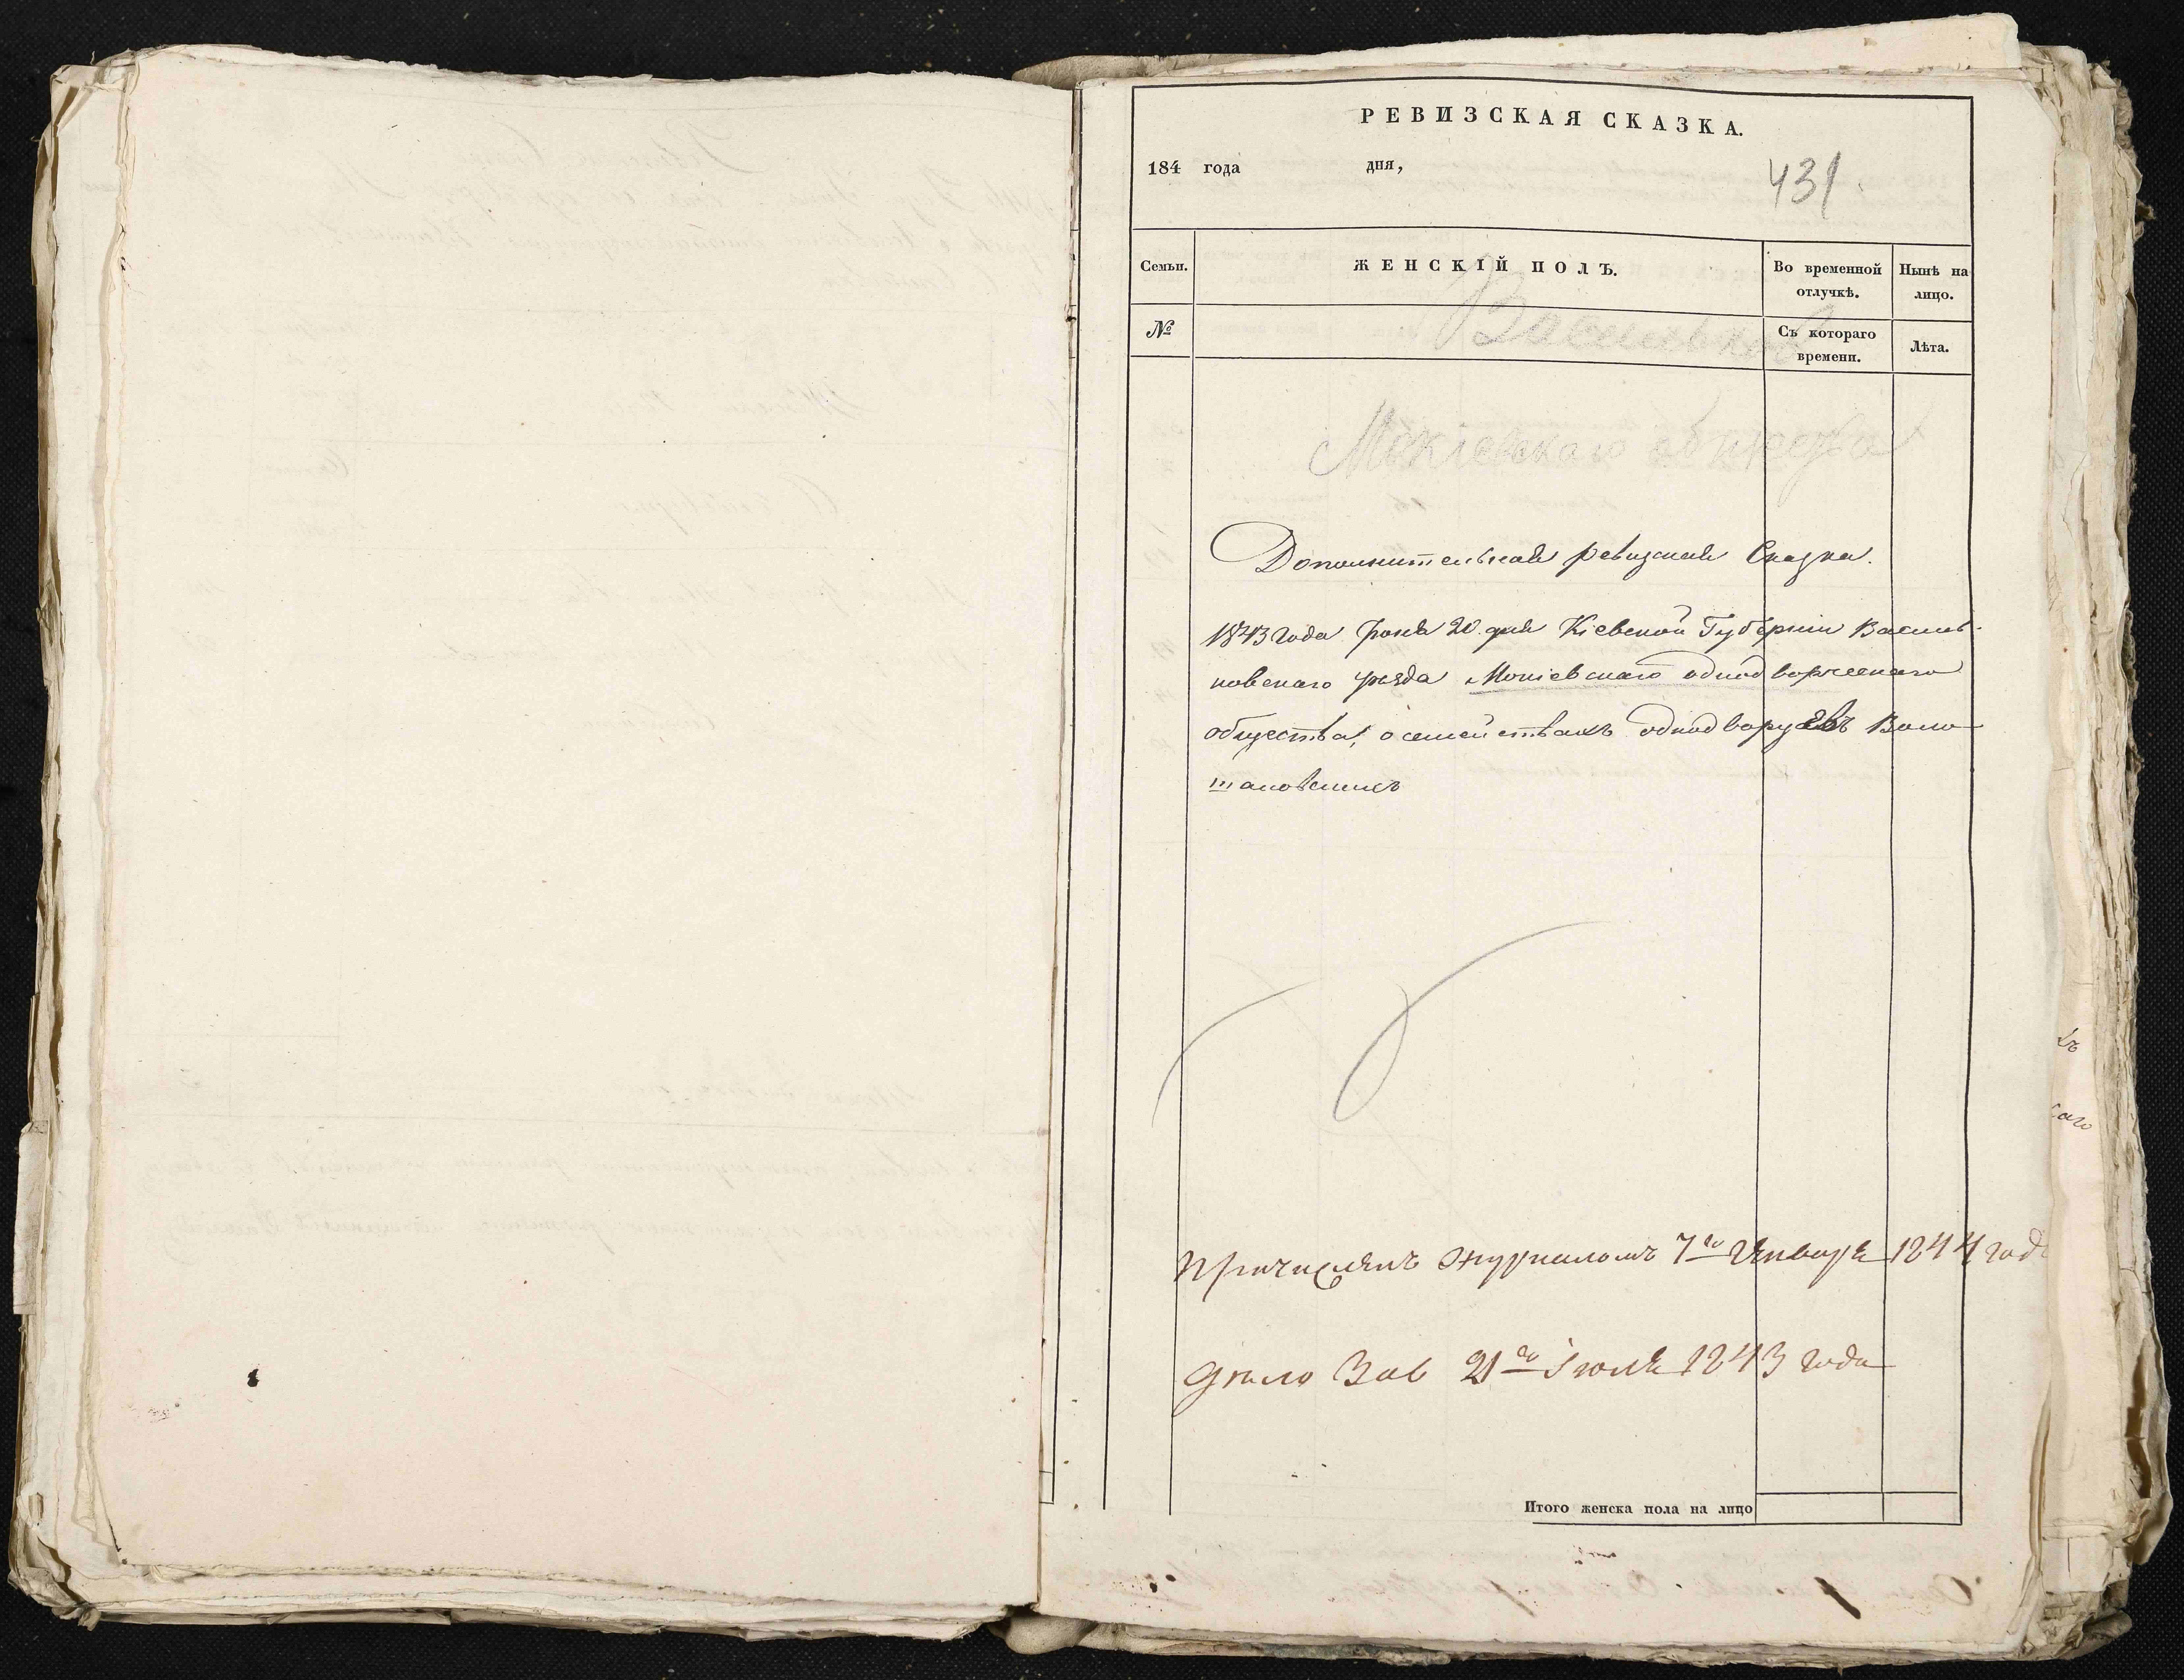 РЕВИЗСКАЯ СКАЗКА.
184 года дня,
431
Семьи.
ЖЕНСКІЙ ПОЛЪ.
Во временной отлучкѣ.
Нынѣ на лицо.
№
Васильков
Съ котораго времени.
Лѣта.
Мокіевскаго общества
Дополнительная ревизская Сказка.
1843 года Іюня 20 дня Кіевской Губерніи Василь-
ковскаго уѣзда Мокіевскаго однодворческаго
общества, о семействахъ однодворцевъ
Причислены журналомъ 7го Января 1844 года
дѣло 21го Іюля 1843 года
Итого женска пола на лицо